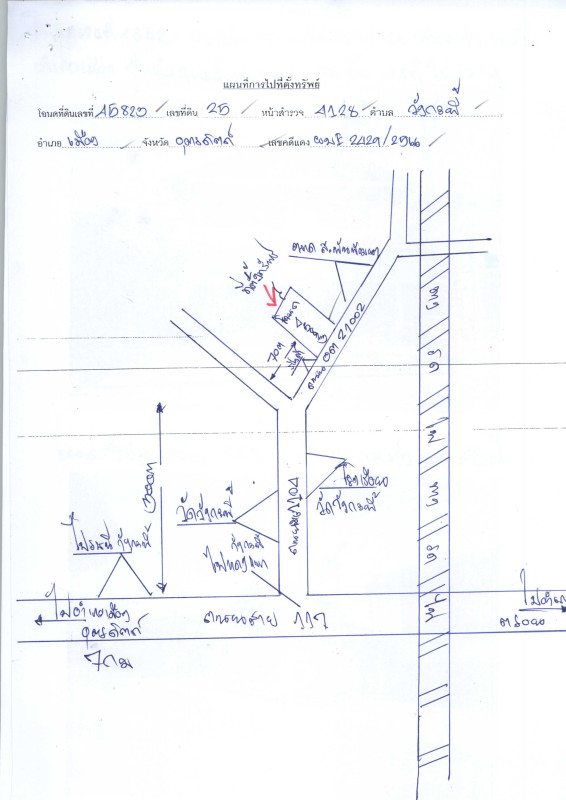 แผนที่การไปที่ตั้งทรัพย์
โฉนดที่ดินเลขที่ 45820 เลขที่ดิน 25 หน้าสำรวจ 4128 ตำบล วังกะพี้
อำเภอ เมือง จังหวัด อุตรดิตถ์ เลขคดีแดง ผบE 2429/
ที่ตั้งทรัพย์
ถนน อต 21002
70 ม
ถนนสาย 1104
โรงเรียน
วัดวังกะพี้
วัดวังกะพี้
ไปรษณีย์ วังกะพี้
วังกะพี้
ไปอำเภอเมือง
อุตรดิตถ์
7 กม
ถนนสาย 117
ไปอำเภอ
ตรอน
ทาง
รถ
ไฟ
ทาง
รถ
ไฟ